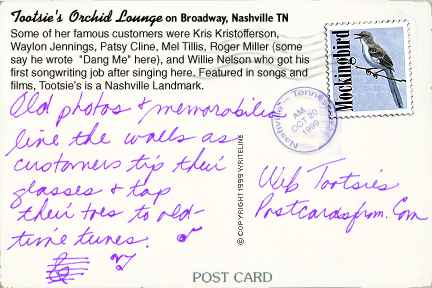 Tootsie's Orchid Lounge on Broadway, Nashville TN
Some of her famous customers were Kris Kristofferson,
Waylon Jennings, Patsy Cline, Mel Tillis, Roger Miller (some
say he wrote "Dang Me" here), and Willie Nelson who got his
first songwriting job after singing here. Featured in songs and
films, Tootsie's is a Nashville Landmark.
Old photos & memorabilia
line the walls as
customers tip their
glasses & tap
their toes to old-
time tunes.
Mockingbird
Nashville - Tennessee
AM
OCT 20
1999
© COPYRIGHT 1999 WRITELINE
Web Tootsies
Postcardsfrom.Com
POST CARD